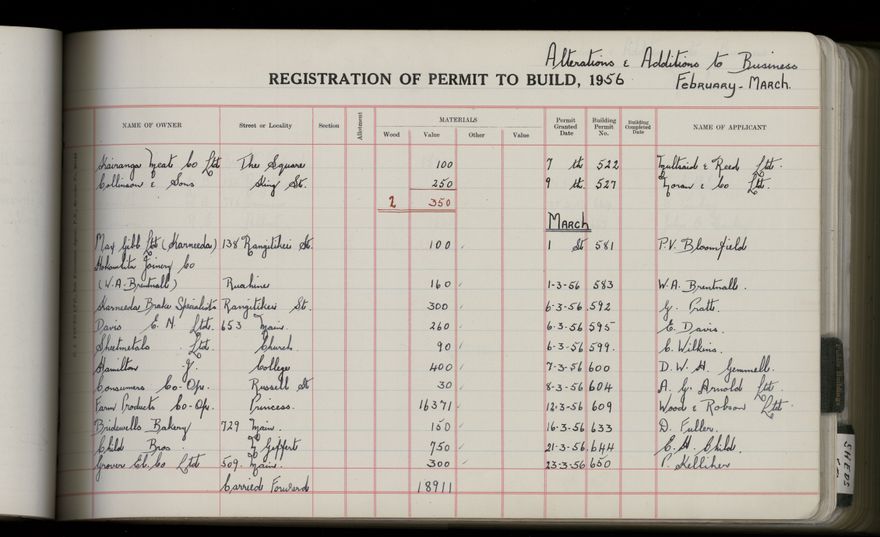 Alterations & Additions to Business
REGISTRATION OF PERMIT TO BUILD, 1956 February - March.
NAME OF OWNER Street or Locality Section Allotment MATERIALS Wood Value Other Value Permit Granted Date Building Permit No. Building Completed Date NAME OF APPLICANT
Kairanga Meat Co Ltd The Square 100 7 th 522 & Reed Ltd.
Collinson & Sons King St. 250 9 th. 527 Moran & Co Ltd.
2 350
MARCH
Max Gibb Ltd (Karneeda) 138 Rangitikei St. 100 1 St 581 P.V. Bloomfield
Hokowhitu Joinery Co
(W.A. Brentnall) Ruahine 160 1-3-56 583 W.A. Brentnall.
Karneeda Brake Specialists Rangitikei St. 300 6-3-56 592 G. Pratt.
Davis E. N. Ltd. 653 Main. 260 6-3-56 595 E. Davis.
Sheetmetals Ltd. Church. 90 6-3-56 599. C. Wilkins.
Hamilton J. College 400 7-3-56 600 D. W. H. Gemmell.
Consumers Co-Op. Russell St 30 8-3-56 604 A. G. Arnold Ltd.
Farm Products Co-Op. Princess. 16371 12-3-56 609 Wood & Robson Ltd.
Bridewells Bakery 729 Main. 150 16-3-56 633 D. Fuller.
Child Bros. McGiffert 750 21-3-56 644 C. H. Child.
Grover El. Co Ltd 509. Main. 300 23-3-56 650 P. Kelliher
Carried Forward 18911
SHEDS